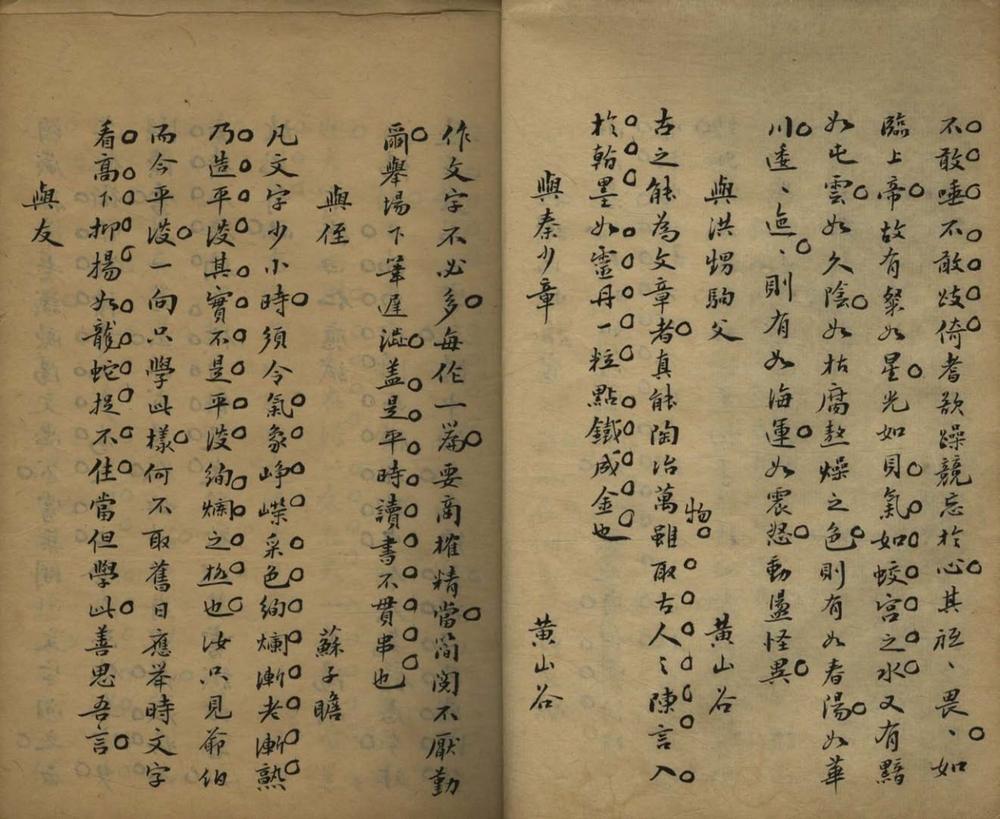 不敢唾不敢跂倚耆欲躁競忘於心其祗、畏、如
臨上帝故有粲如星光如貝氣如蛟宮之水又有黯
如屯雲如久陰如枯腐熬燥之色則有如春陽如華
川逶、迤、則有如海運如震怒動盪怪異
與洪甥駒父 黃山谷
古之能為文章者真能陶冶萬物雖取古人之陳言入
於翰墨如靈丹一粒點鐵成金也
與秦少章 黃山谷
作文字不必多每作一篇要商搉精當簡閱不厭勤
爾舉場下筆遲澁盖是平時讀書不貫串也
與侄 蘇子瞻
凡文字少小時須令氣象崢嶸采色絢爛漸老漸熟
乃造平淡其實不是平淡絢爛之極也汝只見爺伯
而今平淡一向只學此樣何不取舊日應舉時文字
看高下抑揚如龍蛇捉不住當但學此善思吾言
與友